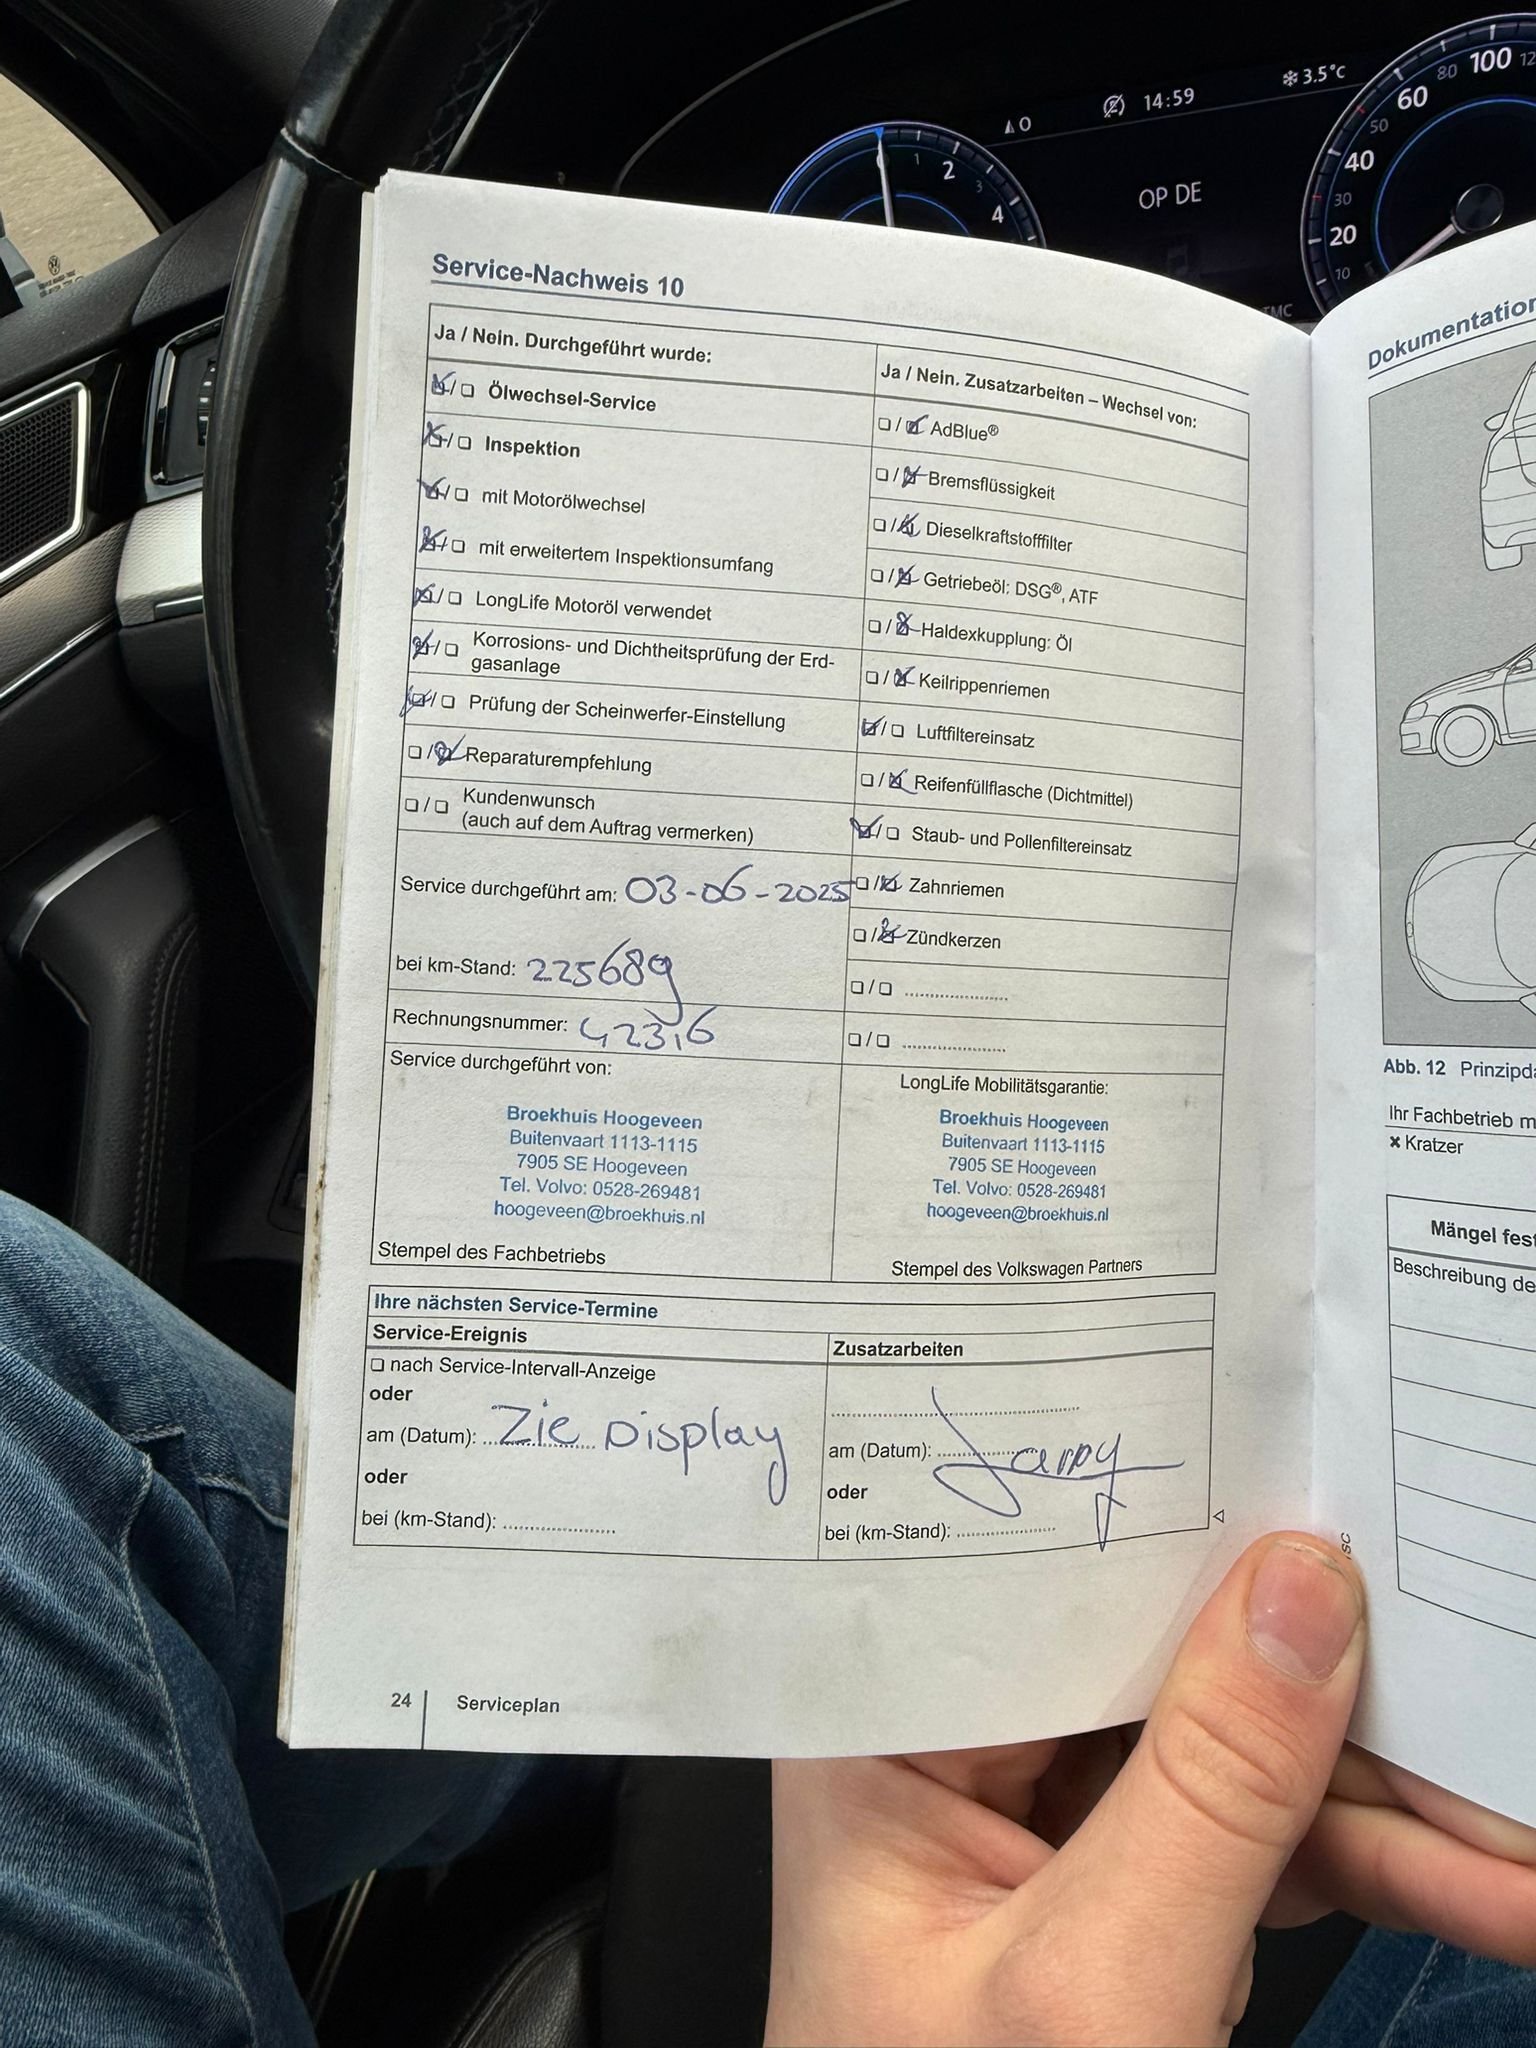 3.5°C
14:59
0
1
2
3
4
OP DE
10
20
30
40
50
60
80
100
TMC
Service-Nachweis 10
Ja / Nein. Durchgeführt wurde:
Ölwechsel-Service
Inspektion
mit Motorölwechsel
mit erweitertem Inspektionsumfang
LongLife Motoröl verwendet
Korrosions- und Dichtheitsprüfung der Erd-
gasanlage
Prüfung der Scheinwerfer-Einstellung
Reparaturempfehlung
Kundenwunsch
(auch auf dem Auftrag vermerken)
Service durchgeführt am: 03-06-2025
bei km-Stand: 225689
Rechnungsnummer:
Service durchgeführt von:
Broekhuis Hoogeveen
Buitenvaart 1113-1115
7905 SE Hoogeveen
Tel. Volvo: 0528-269481
hoogeveen@broekhuis.nl
Stempel des Fachbetriebs
Ja / Nein. Zusatzarbeiten – Wechsel von:
AdBlue®
Bremsflüssigkeit
Dieselkraftstofffilter
Getriebeöl: DSG®, ATF
Haldexkupplung: Öl
Keilrippenriemen
Luftfiltereinsatz
Reifenfüllflasche (Dichtmittel)
Staub- und Pollenfiltereinsatz
Zahnriemen
Zündkerzen
LongLife Mobilitätsgarantie:
Broekhuis Hoogeveen
Buitenvaart 1113-1115
7905 SE Hoogeveen
Tel. Volvo: 0528-269481
hoogeveen@broekhuis.nl
Stempel des Volkswagen Partners
Ihre nächsten Service-Termine
Service-Ereignis
nach Service-Intervall-Anzeige
oder
am (Datum): Zie Display
oder
bei (km-Stand):
Zusatzarbeiten
am (Datum):
oder
bei (km-Stand):
24 Serviceplan
Dokumentation
Abb. 12
Ihr Fachbetrieb
Kratzer
Mängel
Beschreibung